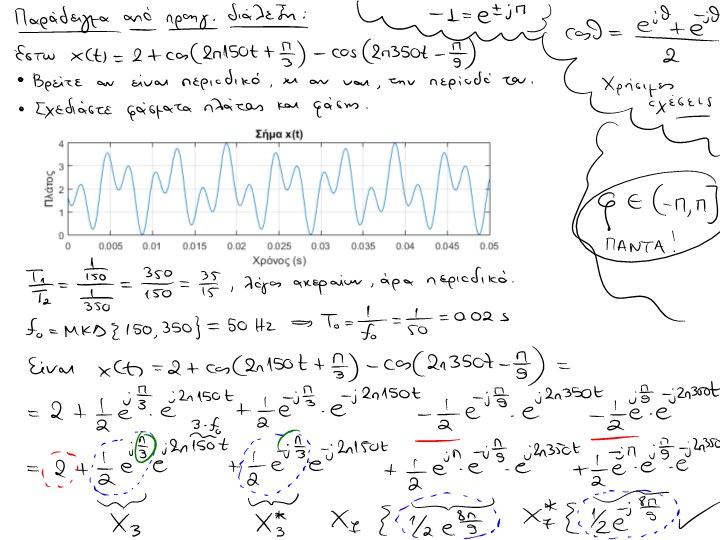 Παράδειγμα από προηγ. διάλεξη:
-1 = e^{±jπ}
cosθ = (e^{jθ} + e^{-jθ})/2
Έστω x(t) = 2 + cos(2π150t + π/3) - cos(2π350t - π/9)
• Βρείτε αν είναι περιοδικό, κι αν ναι, την περίοδό του.
Χρήσιμες
σχέσεις
• Σχεδιάστε φάσματα πλάτους και φάσης.
Σήμα x(t)
Πλάτος
4
3
2
1
0
0 0.005 0.01 0.015 0.02 0.025 0.03 0.035 0.04 0.045 0.05
Χρόνος (s)
φ ∈ (-π, π]
ΠΑΝΤΑ!
T₁/T₂ = (1/150)/(1/350) = 350/150 = 35/15, λόγος ακεραίων, άρα περιοδικό.
f₀ = ΜΚΔ{150, 350} = 50 Hz ⇒ T₀ = 1/f₀ = 1/50 = 0.02 s
Είναι x(t) = 2 + cos(2π150t + π/3) - cos(2π350t - π/9) =
= 2 + 1/2 e^{jπ/3} · e^{j2π150t} + 1/2 e^{-jπ/3} · e^{-j2π150t} - 1/2 e^{-jπ/9} · e^{j2π350t} - 1/2 e^{jπ/9} · e^{-j2π350t}
3·f₀
= 2 + 1/2 e^{jπ/3} · e^{j2π150t} + 1/2 e^{-jπ/3} · e^{-j2π150t} + 1/2 e^{jπ} · e^{-jπ/9} · e^{j2π350t} + 1/2 e^{-jπ} · e^{jπ/9} · e^{-j2π350t}
X₃ X₃* X₇ { 1/2 e^{j8π/9} X₇* { 1/2 e^{-j8π/9}